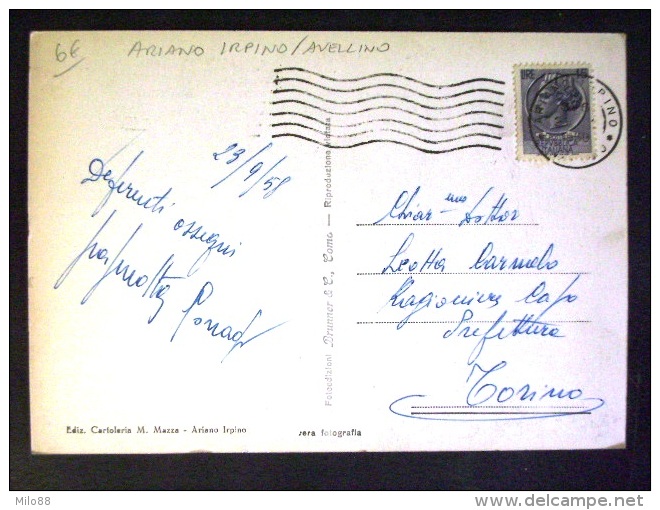 6€
ARIANO IRPINO/AVELLINO
LIRE
IRPINO
REPUBBLICA
ITALIANA
23/9/58
Deferenti
ossequi
Chiar-mo Dottor
Leotta Carmelo
Ragioniere Capo
Prefettura
Torino
Fotoedizioni Brunner & C., Como — Riproduzione vietata
Ediz. Cartoleria M. Mazza - Ariano Irpino
vera fotografia
Milo88
delcampe.net